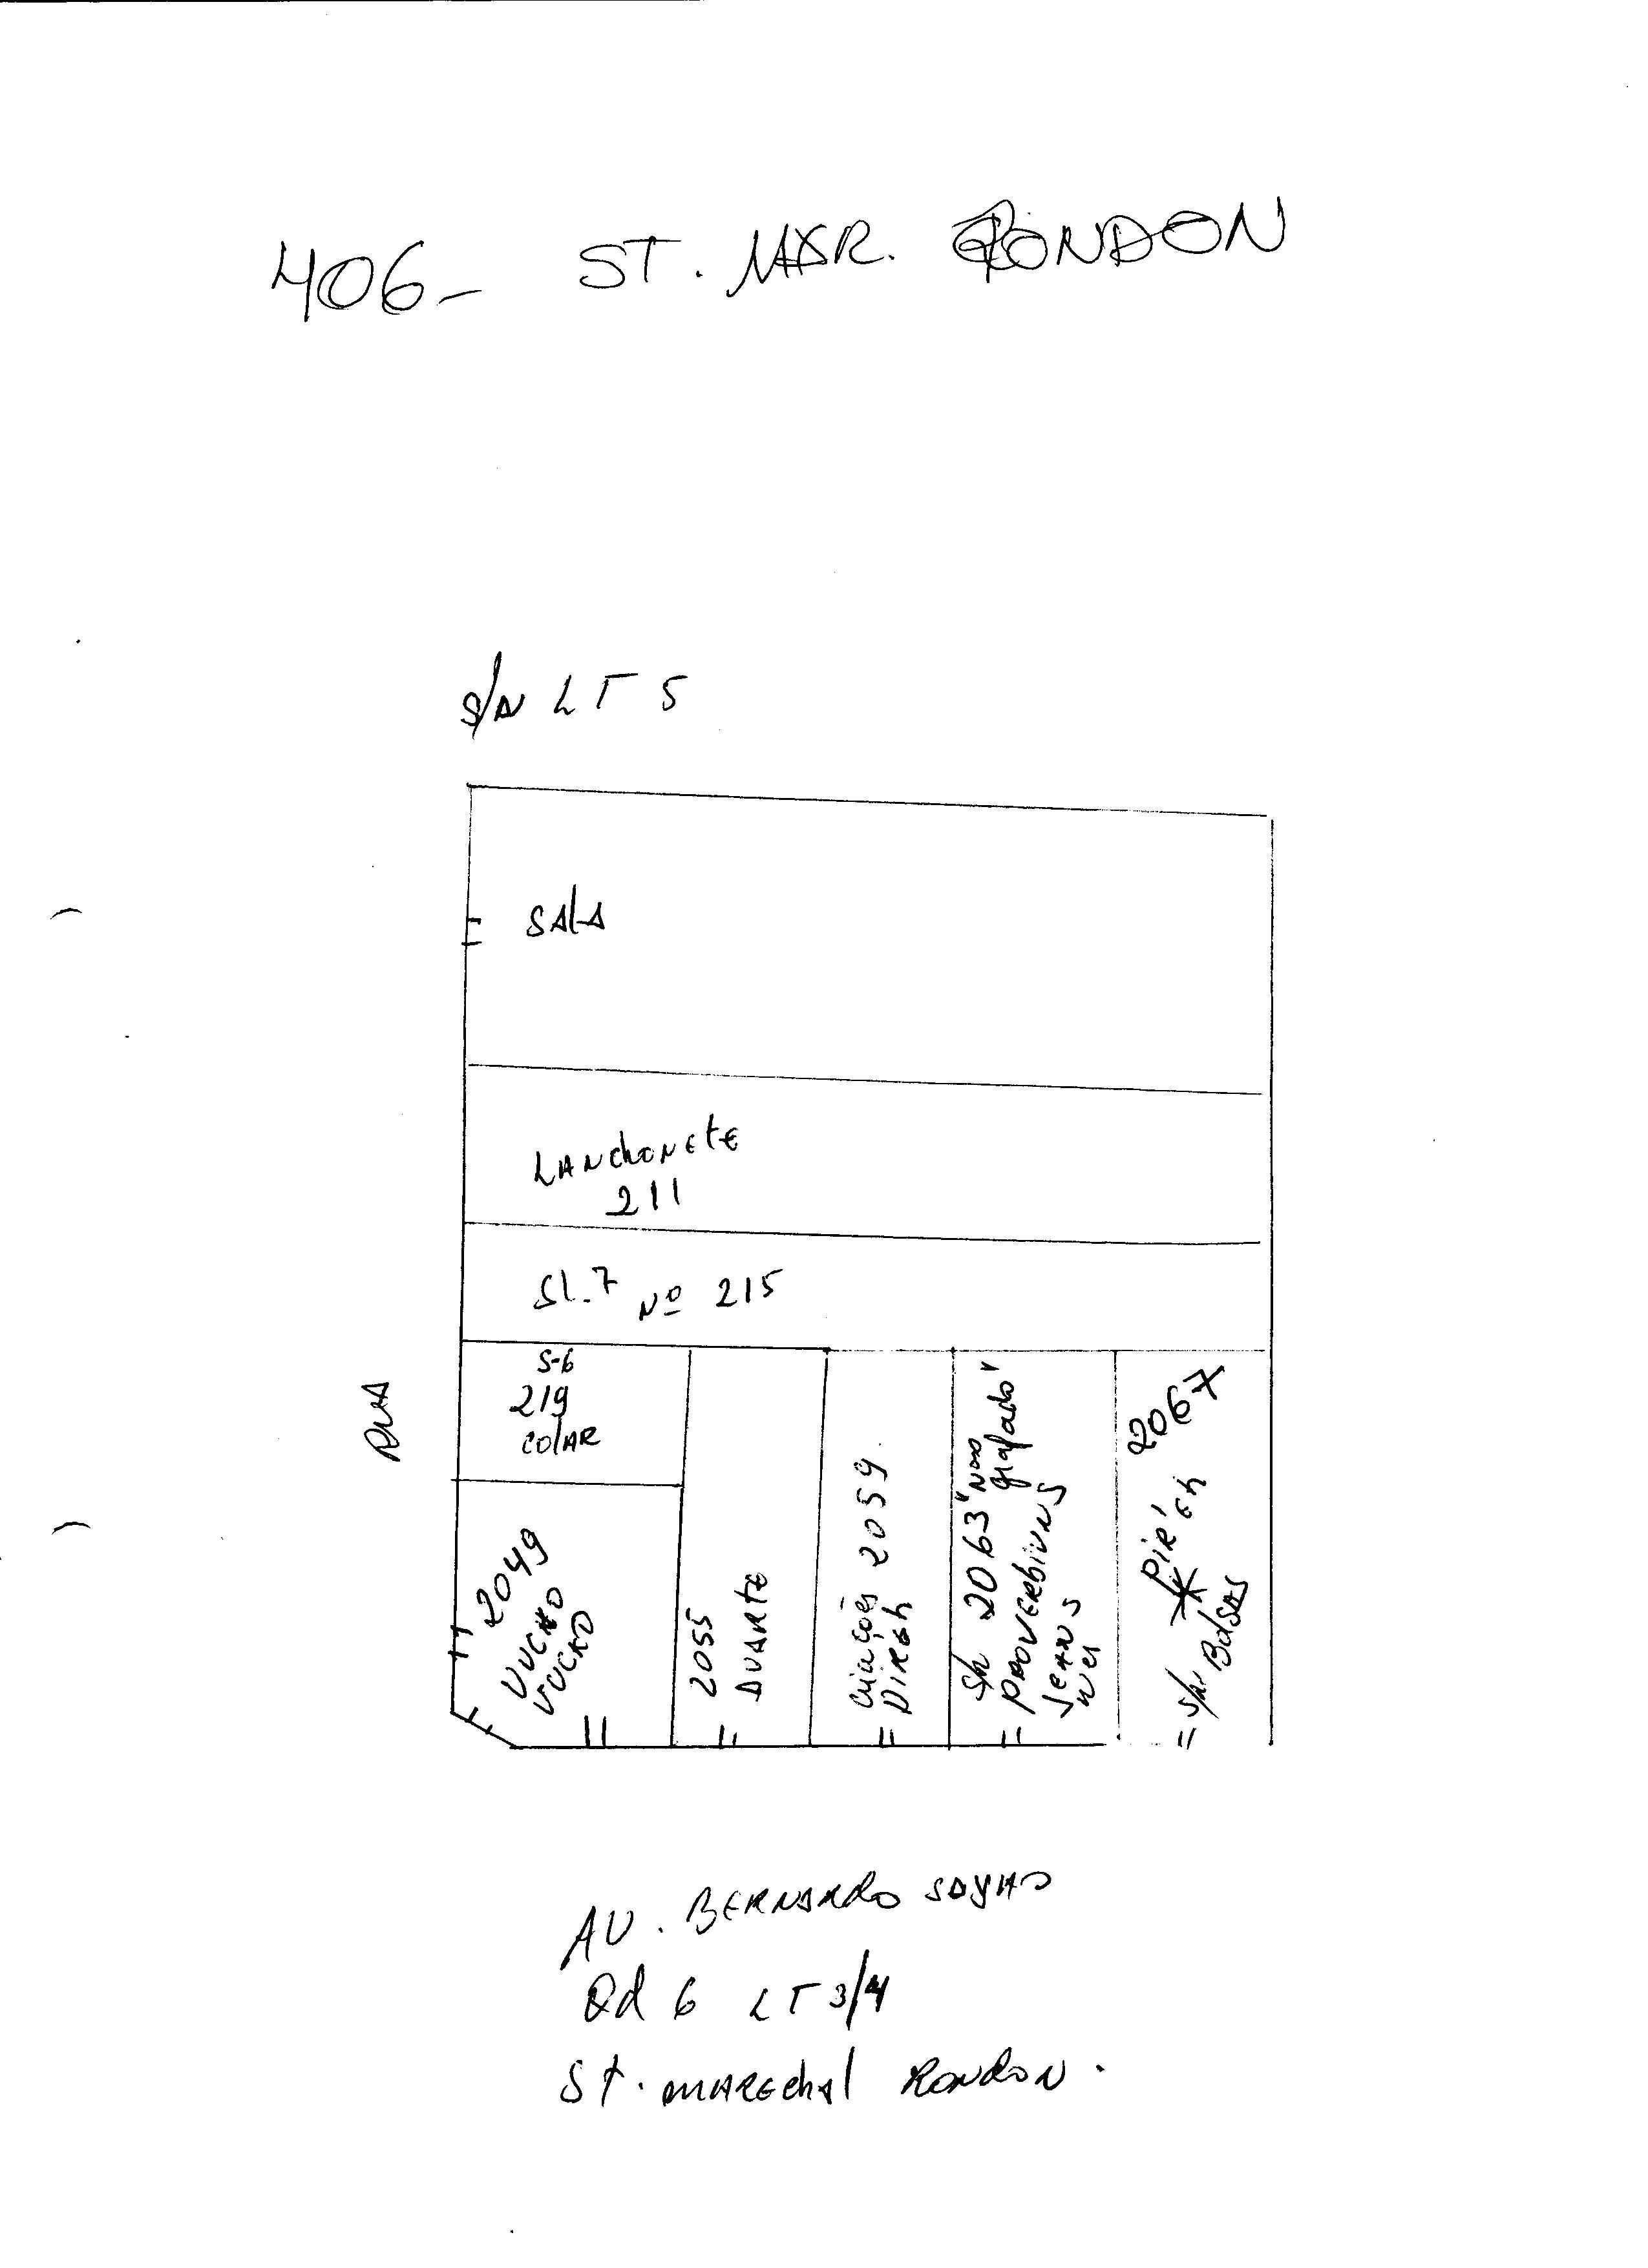 406- ST. MAR. RONDON
S/N LT 5
SALA
LANCHONETE
211
SL.7 Nº 215
S-6
219
COLAR
RUA
2049
VUCKO
VUCKO
2055
DUARTE
CRIAÇÕES 2059
S/N 2063 "NÃO
GRAFADO"
PROVERBIUNS
JEANS
2067
S/N
BOLSAS
AV. BERNARDO SAYÃO
Qd 6 LT 3/4
St. MARECHAL RONDON.